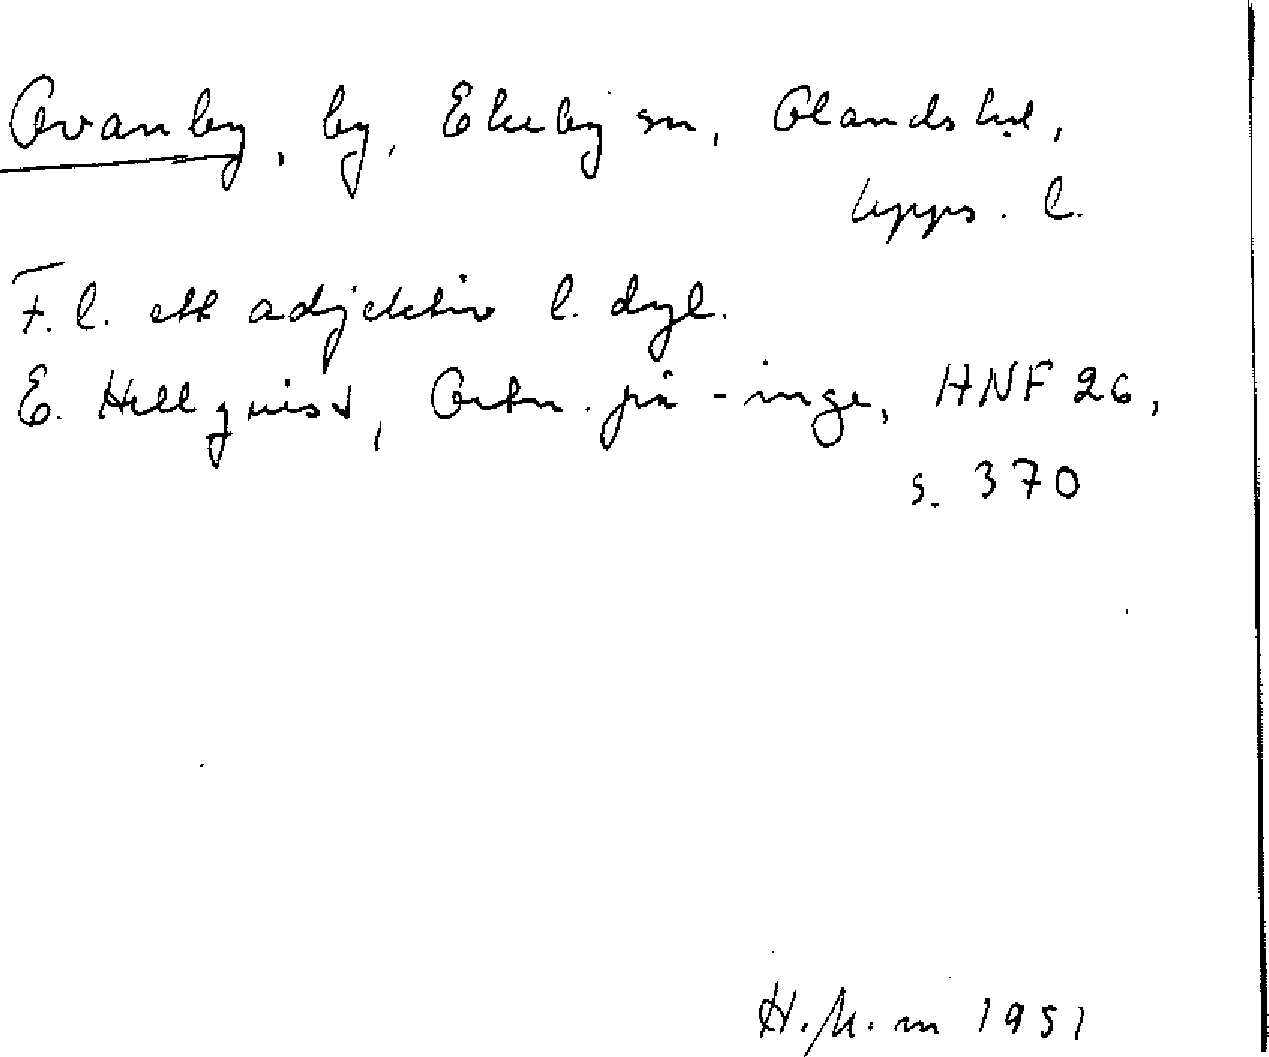 Ovanby, by, Ekeby sn, Olands hd,
Upps. l.
F.l. ett adjektiv l. dyl.
E. Hellquist, Ortn. på -inge, HNF 26,
s. 370
1951